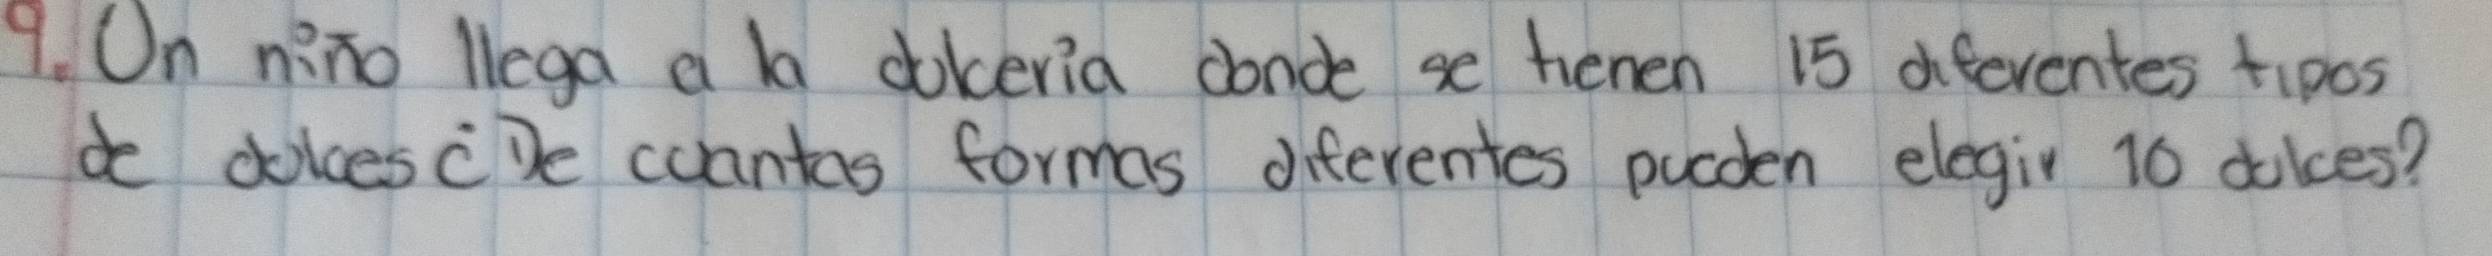 9. Un niño llega a la dulceria donde se tienen 15 diferentes tipos
de dulces ¿De cuantas formas diferentes pueden elegir 10 dulces?